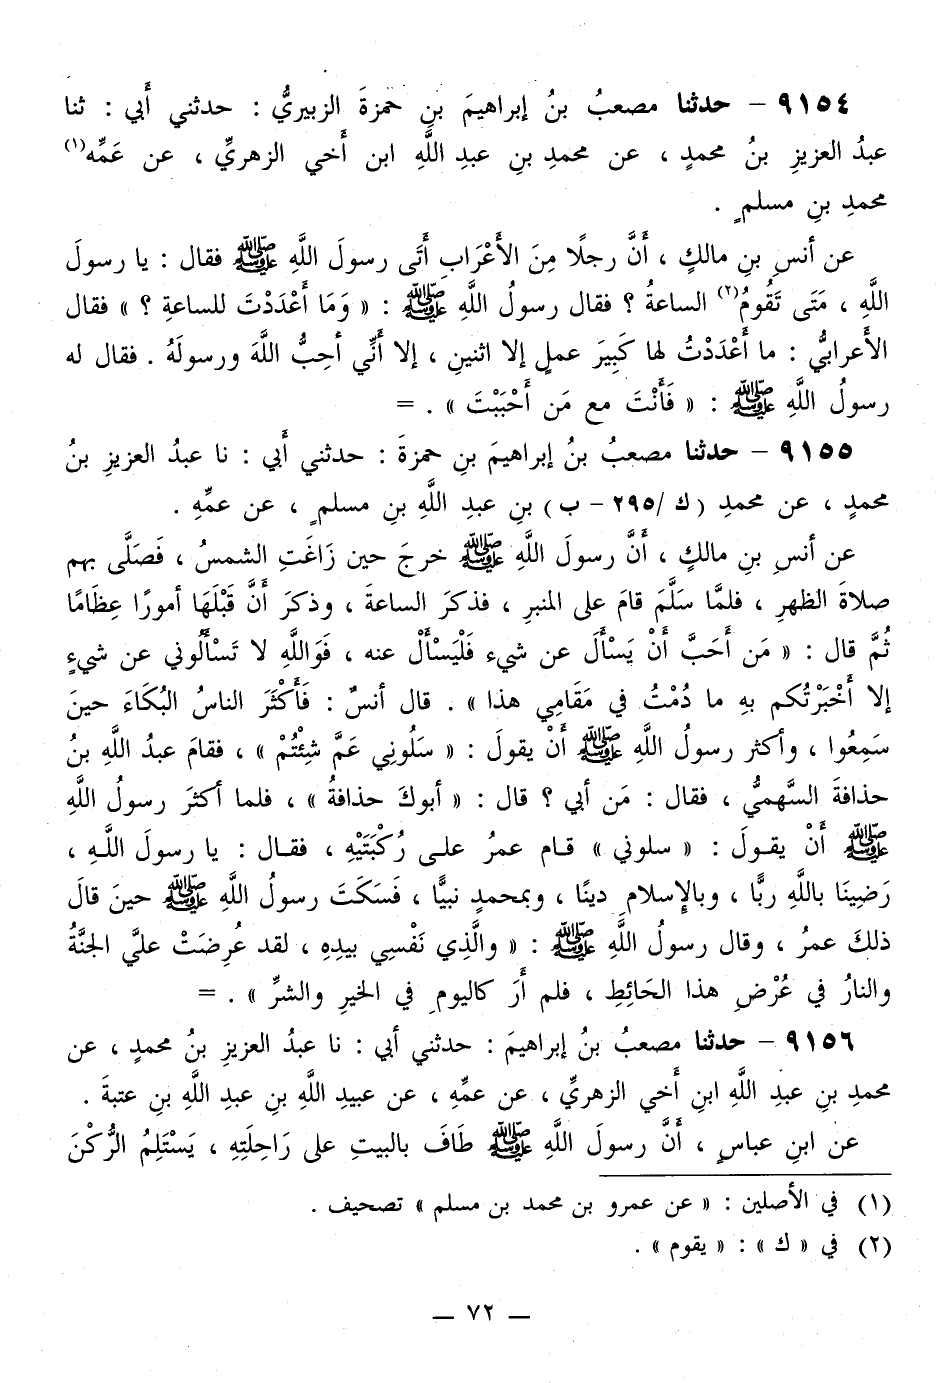 ٩١٥٤ - حدثنا مصعبُ بنُ إبراهيمَ بنِ حمزةَ الزبيريُّ : حدثني أَبي : ثنا
عبدُ العزيزِ بنُ محمدٍ ، عن محمدِ بنِ عبدِ اللَّهِ ابن أَخي الزهريِّ ، عن عَمِّه(١)
محمدِ بنِ مسلمٍ .
عن أنسِ بنِ مالكٍ ، أَنَّ رجلًا مِنَ الأَعْرَابِ أَتَى رسولَ اللَّهِ ﷺ فقال : يا رسولَ
اللَّهِ ، مَتَى تَقُومُ(٢) الساعةُ ؟ فقال رسولُ اللَّهِ ﷺ : « وَمَا أَعْدَدْتَ للساعةِ ؟ » فقال
الأَعرابيُّ : ما أَعْدَدْتُ لها كَبِيرَ عملٍ إلا اثنينِ ، إلا أَنِّي أحِبُّ اللَّهَ ورسولَهُ . فقال له
رسولُ اللَّهِ ﷺ : « فَأَنْتَ مع مَن أَحْبَبْتَ » . =
٩١٥٥ - حدثنا مصعبُ بنُ إبراهيمَ بنِ حمزةَ : حدثني أَبي : نا عبدُ العزيزِ بنُ
محمدٍ ، عن محمدِ (ك /٢٩٥ - ب) بنِ عبدِ اللَّهِ بنِ مسلمٍ ، عن عمِّهِ .
عن أنسِ بنِ مالكٍ ، أَنَّ رسولَ اللَّهِ ﷺ خرجَ حين زَاغَتِ الشمسُ ، فَصَلَّى بهم
صلاةَ الظهرِ ، فلمَّا سَلَّمَ قامَ على المنبرِ ، فذكرَ الساعةَ ، وذكرَ أَنَّ قَبْلَهَا أمورًا عِظَامًا
ثُمَّ قال : « مَن أَحَبَّ أَنْ يَسْأَلَ عن شيء فَلْيَسْأَلْ عنه ، فَوَاللَّهِ لا تَسْأَلُوني عن شيءٍ
إلا أَخْبَرْتُكم بهِ ما دُمْتُ في مَقَامِي هذا » . قال أنسٌ : فَأَكْثَرَ الناسُ البُكَاءَ حينَ
سَمِعُوا ، وأكثر رسولُ اللَّهِ ﷺ أَنْ يقولَ : « سَلُونِي عَمَّ شِئْتُمْ » ، فقامَ عبدُ اللَّهِ بنُ
حذافةَ السَّهميُّ ، فقال : مَن أبي ؟ قال : « أبوكَ حذافةُ » ، فلما أكثرَ رسولُ اللَّهِ
ﷺ أَنْ يقـولَ : « سلوني » قـام عمرُ علـى رُكْبَتَيْهِ ، فقـال : يا رسولَ اللَّـهِ ،
رَضِينَا باللَّهِ ربًّا ، وبالإسلامِ دِينًا ، وبمحمدٍ نبيًّا ، فَسَكَتَ رسولُ اللَّهِ ﷺ حينَ قالَ
ذلكَ عمرُ ، وقال رسولُ اللَّهِ ﷺ : « والَّذِي نَفْسِي بيدِهِ ، لقد عُرِضَتْ عليَّ الجنَّةُ
والنارُ في عُرْضِ هذا الحَائِطِ ، فلم أَرَ كاليومِ في الخيرِ والشرِّ » . =
٩١٥٦ - حدثنا مصعبُ بنُ إبراهيمَ : حدثني أبي : نا عبدُ العزيزِ بنُ محمدٍ ، عن
محمدِ بنِ عبدِ اللَّهِ ابنِ أَخي الزهريِّ ، عن عمِّهِ ، عن عبيدِ اللَّهِ بنِ عبدِ اللَّهِ بنِ عتبةَ .
عن ابنِ عباسٍ ، أَنَّ رسولَ اللَّهِ ﷺ طَافَ بالبيتِ على رَاحِلَتِهِ ، يَسْتَلِمُ الرُّكْنَ
(١) في الأصلين : « عن عمرو بن محمد بن مسلم » تصحيف .
(٢) في « ك » : « يقوم » .
— ٧٢ —